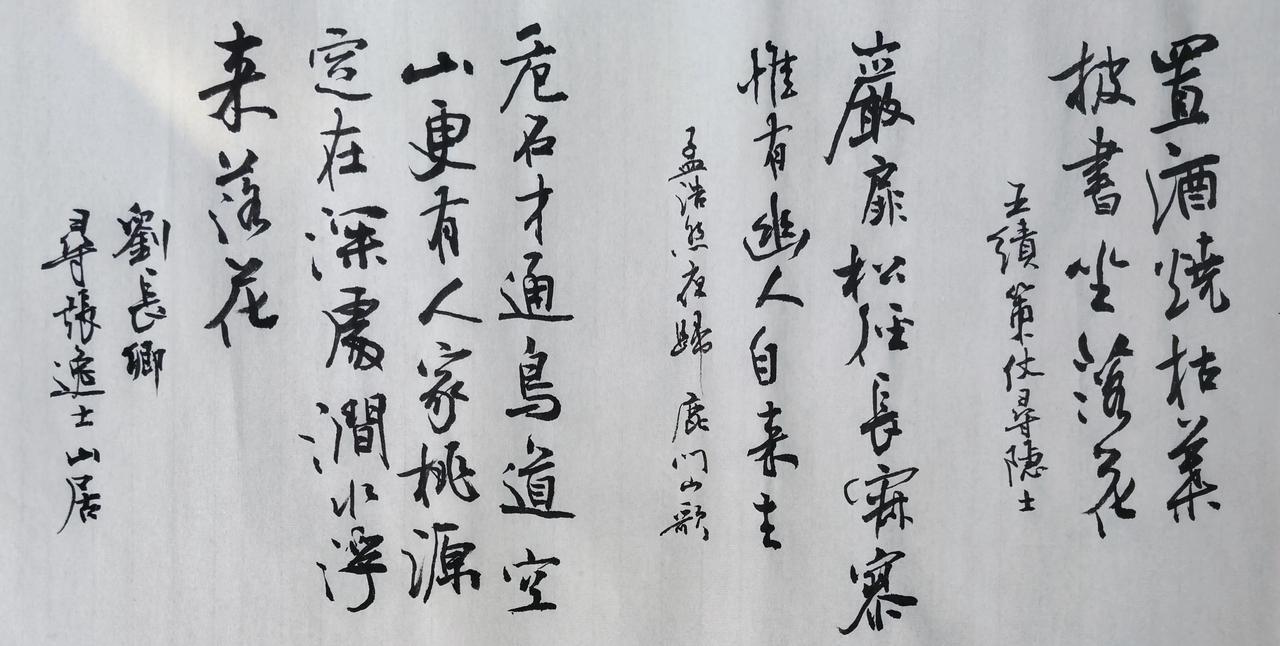 置酒燒枯葉
披書坐落花
王績策仗尋隱士
巖扉松徑長寂寥
惟有幽人自来去
孟浩然夜歸鹿門山歌
危石才通鳥道空
山更有人家桃源
定在深處澗水浮
来落花
劉長卿
尋張逸士山居